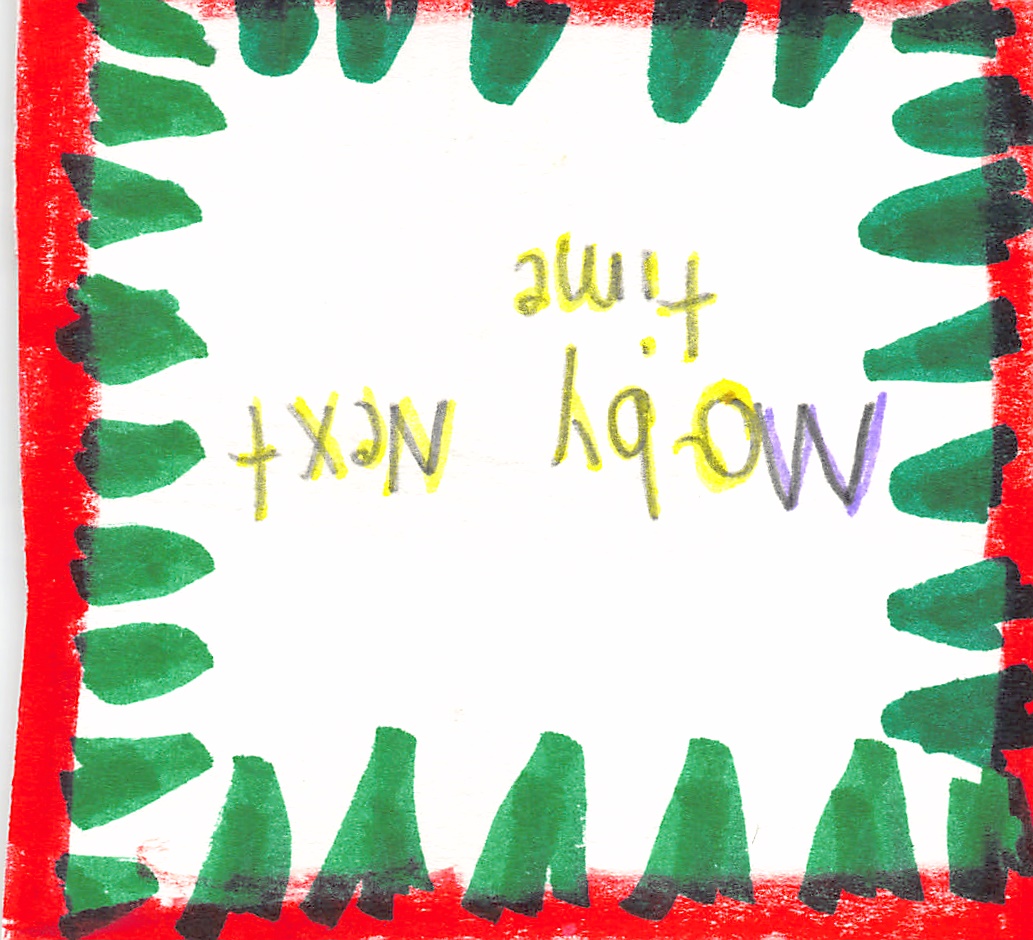 Moby Next
time